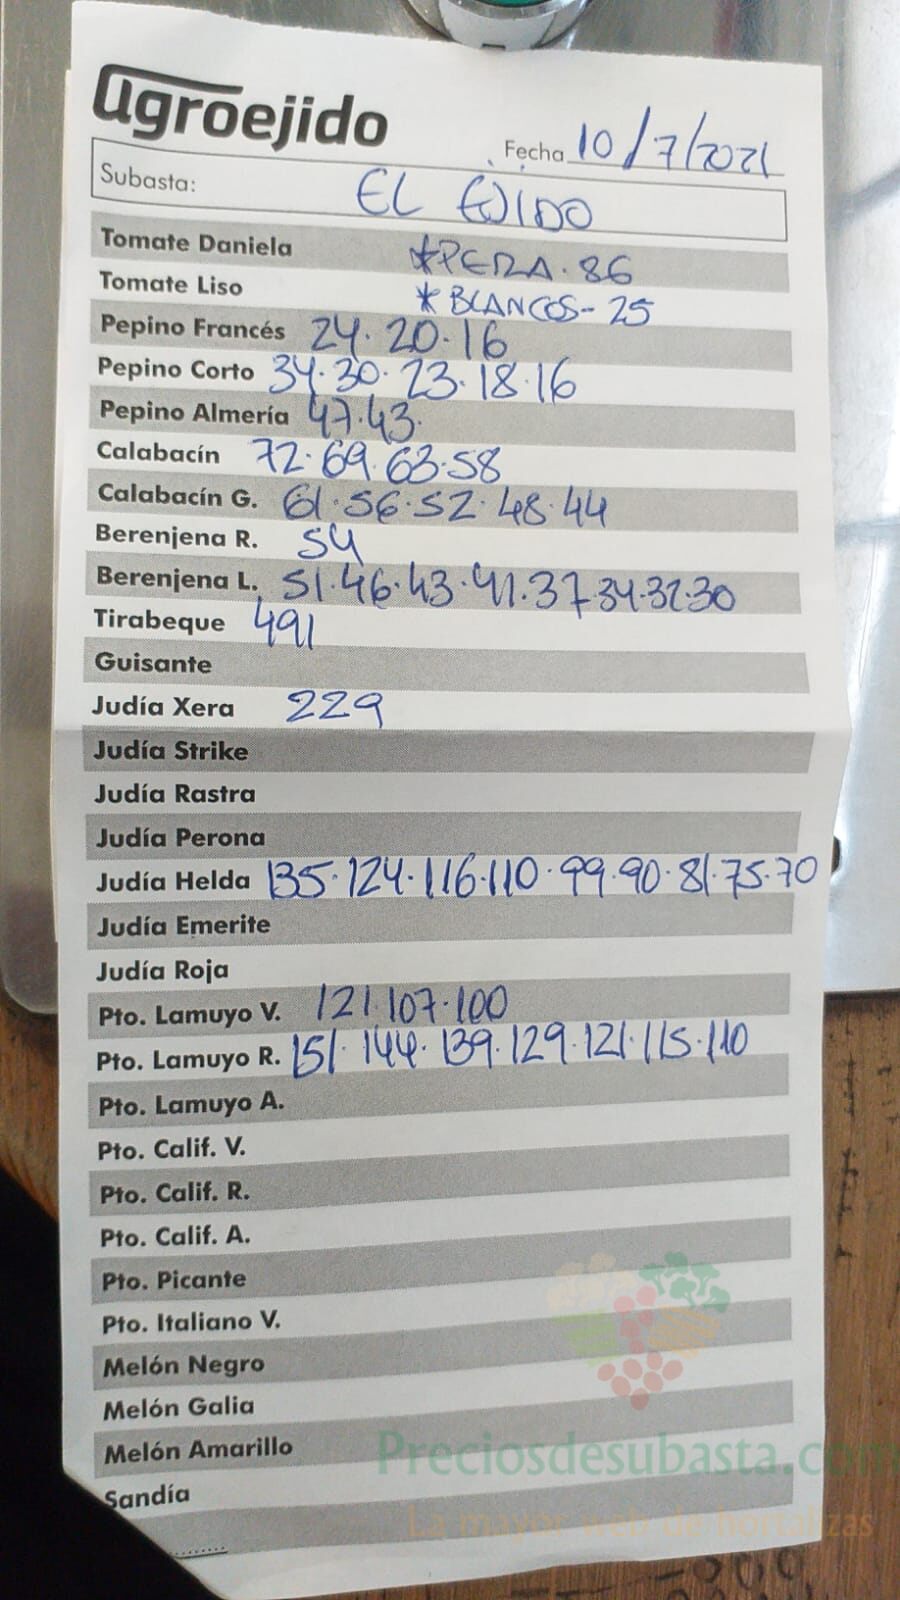 agroejido
Fecha 10/7/2021
Subasta: EL EJIDO
Tomate Daniela *PERA.86
Tomate Liso *BLANCOS-25
Pepino Francés 24.20.16
Pepino Corto 34.30.23.18.16
Pepino Almería 47.43.
Calabacín 72.69.63.58
Calabacín G. 61.56.52.48.44
Berenjena R. 54
Berenjena L. 51.46.43.41.37 34.32.30
Tirabeque 491
Guisante
Judía Xera 229
Judía Strike
Judía Rastra
Judía Perona
Judía Helda 135.124.116.110.99.90.81.75.70
Judía Emerite
Judía Roja
Pto. Lamuyo V. 121.107.100
Pto. Lamuyo R. 151.144.139.129.121.115.110
Pto. Lamuyo A.
Pto. Calif. V.
Pto. Calif. R.
Pto. Calif. A.
Pto. Picante
Pto. Italiano V.
Melón Negro
Melón Galia
Melón Amarillo
Preciosdesubasta.com
Sandía
La mayor web de hortalizas